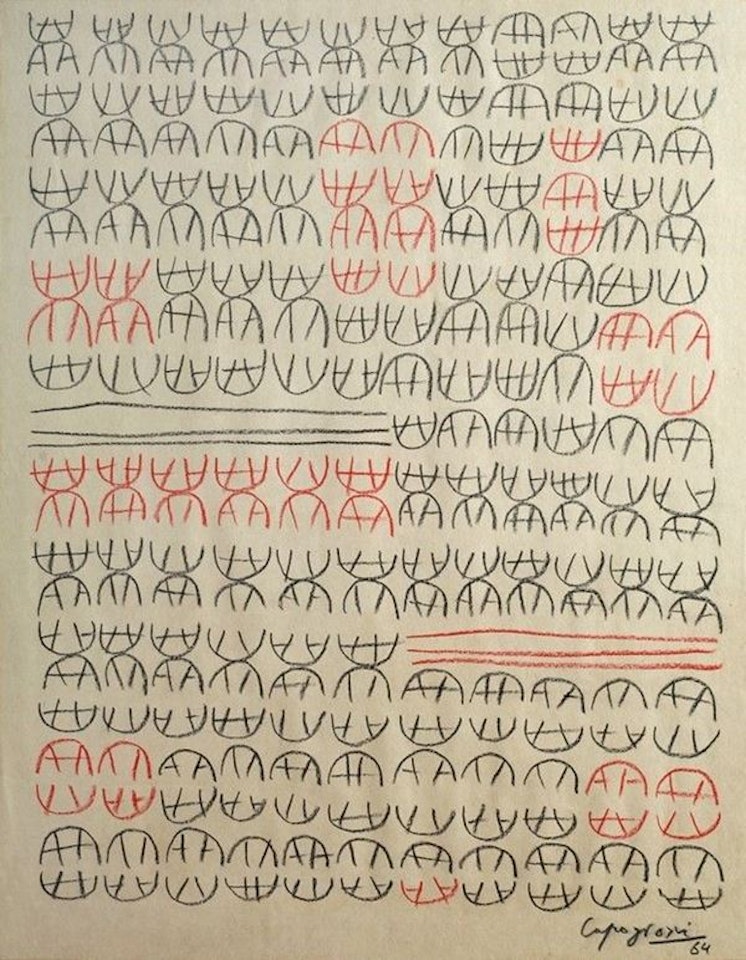 Capogrossi
64